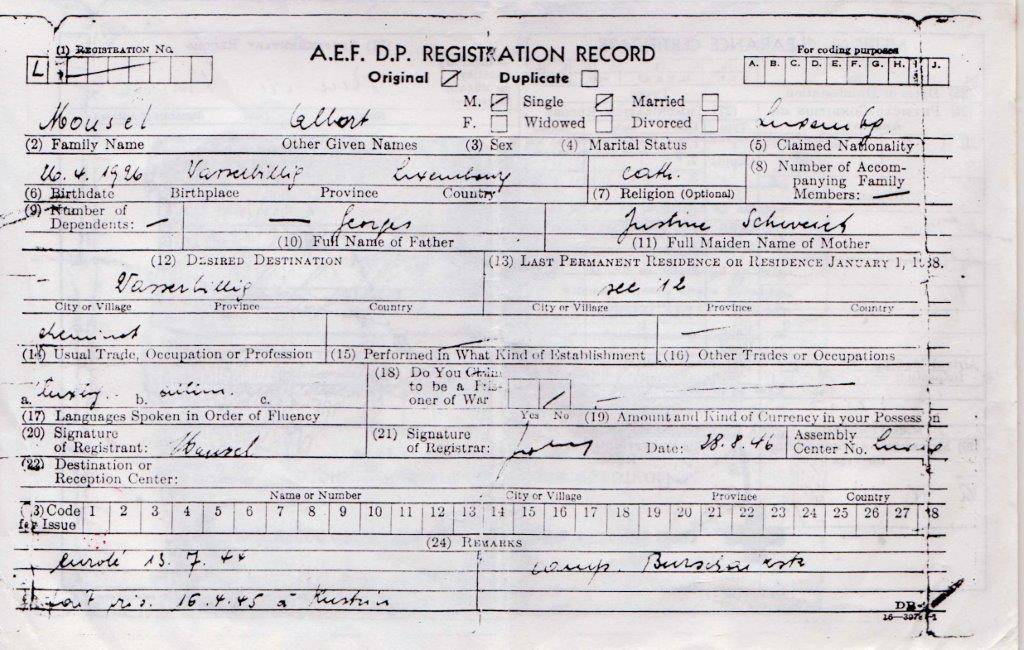 (1) REGISTRATION NO.
A.E.F. D.P. REGISTRATION RECORD
For coding purposes
L
Original Duplicate
A. B. C. D. E. F. G. H. J.
M. Single Married
F. Widowed Divorced
Mousel Albert Luxembg.
(2) Family Name Other Given Names (3) Sex (4) Marital Status (5) Claimed Nationality
26.4.1926 Wasserbillig Luxembourg cath.
(8) Number of Accompanying Family Members: —
(6) Birthdate Birthplace Province Country (7) Religion (Optional)
(9) Number of Dependents: — — Georges Justine
(10) Full Name of Father (11) Full Maiden Name of Mother
(12) DESIRED DESTINATION (13) LAST PERMANENT RESIDENCE OR RESIDENCE JANUARY 1, 1938.
Wasserbillig see 12
City or Village Province Country City or Village Province Country
cheminot — —
(14) Usual Trade, Occupation or Profession (15) Performed in What Kind of Establishment (16) Other Trades or Occupations
(18) Do You Claim to be a Prisoner of War
a. luxbg. b. allem. c.
Yes No
(17) Languages Spoken in Order of Fluency (19) Amount and Kind of Currency in your Possession
(20) Signature of Registrant: Mousel (21) Signature of Registrar: Date: 28.8.46 Assembly Center No.
(22) Destination or Reception Center:
Name or Number City or Village Province Country
(23) Code for Issue 1 2 3 4 5 6 7 8 9 10 11 12 13 14 15 16 17 18 19 20 21 22 23 24 25 26 27 28
(24) REMARKS
enrolé 13.7.44 camp.
fait pris. 16.4.45 à Kustrin
DP-